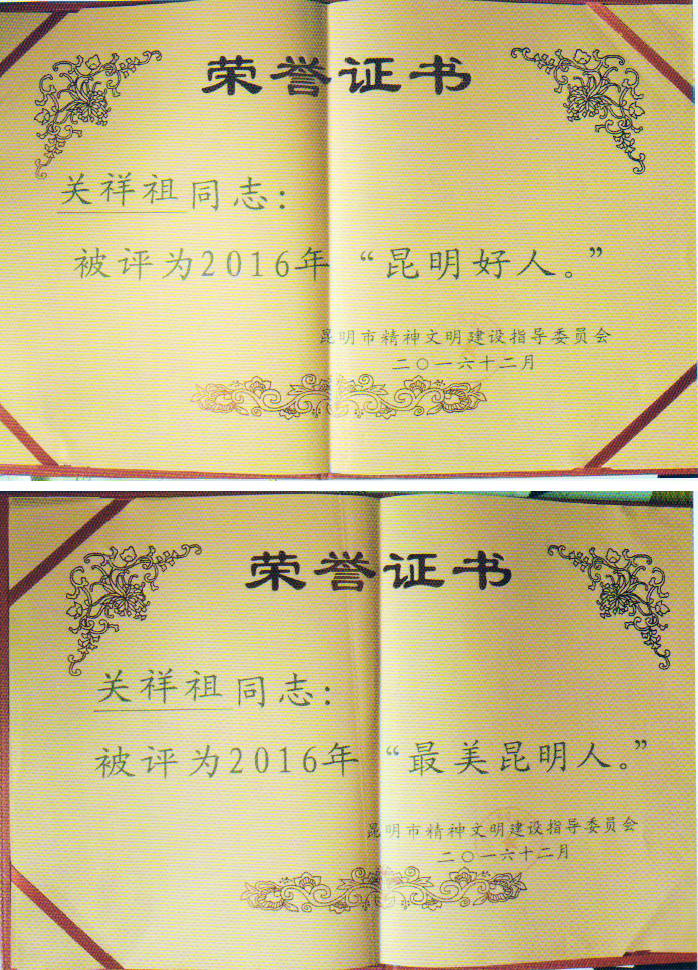 荣誉证书
关祥祖同志：
被评为2016年“昆明好人。”
昆明市精神文明建设指导委员会
二〇一六十二月
荣誉证书
关祥祖同志：
被评为2016年“最美昆明人。”
昆明市精神文明建设指导委员会
二〇一六十二月